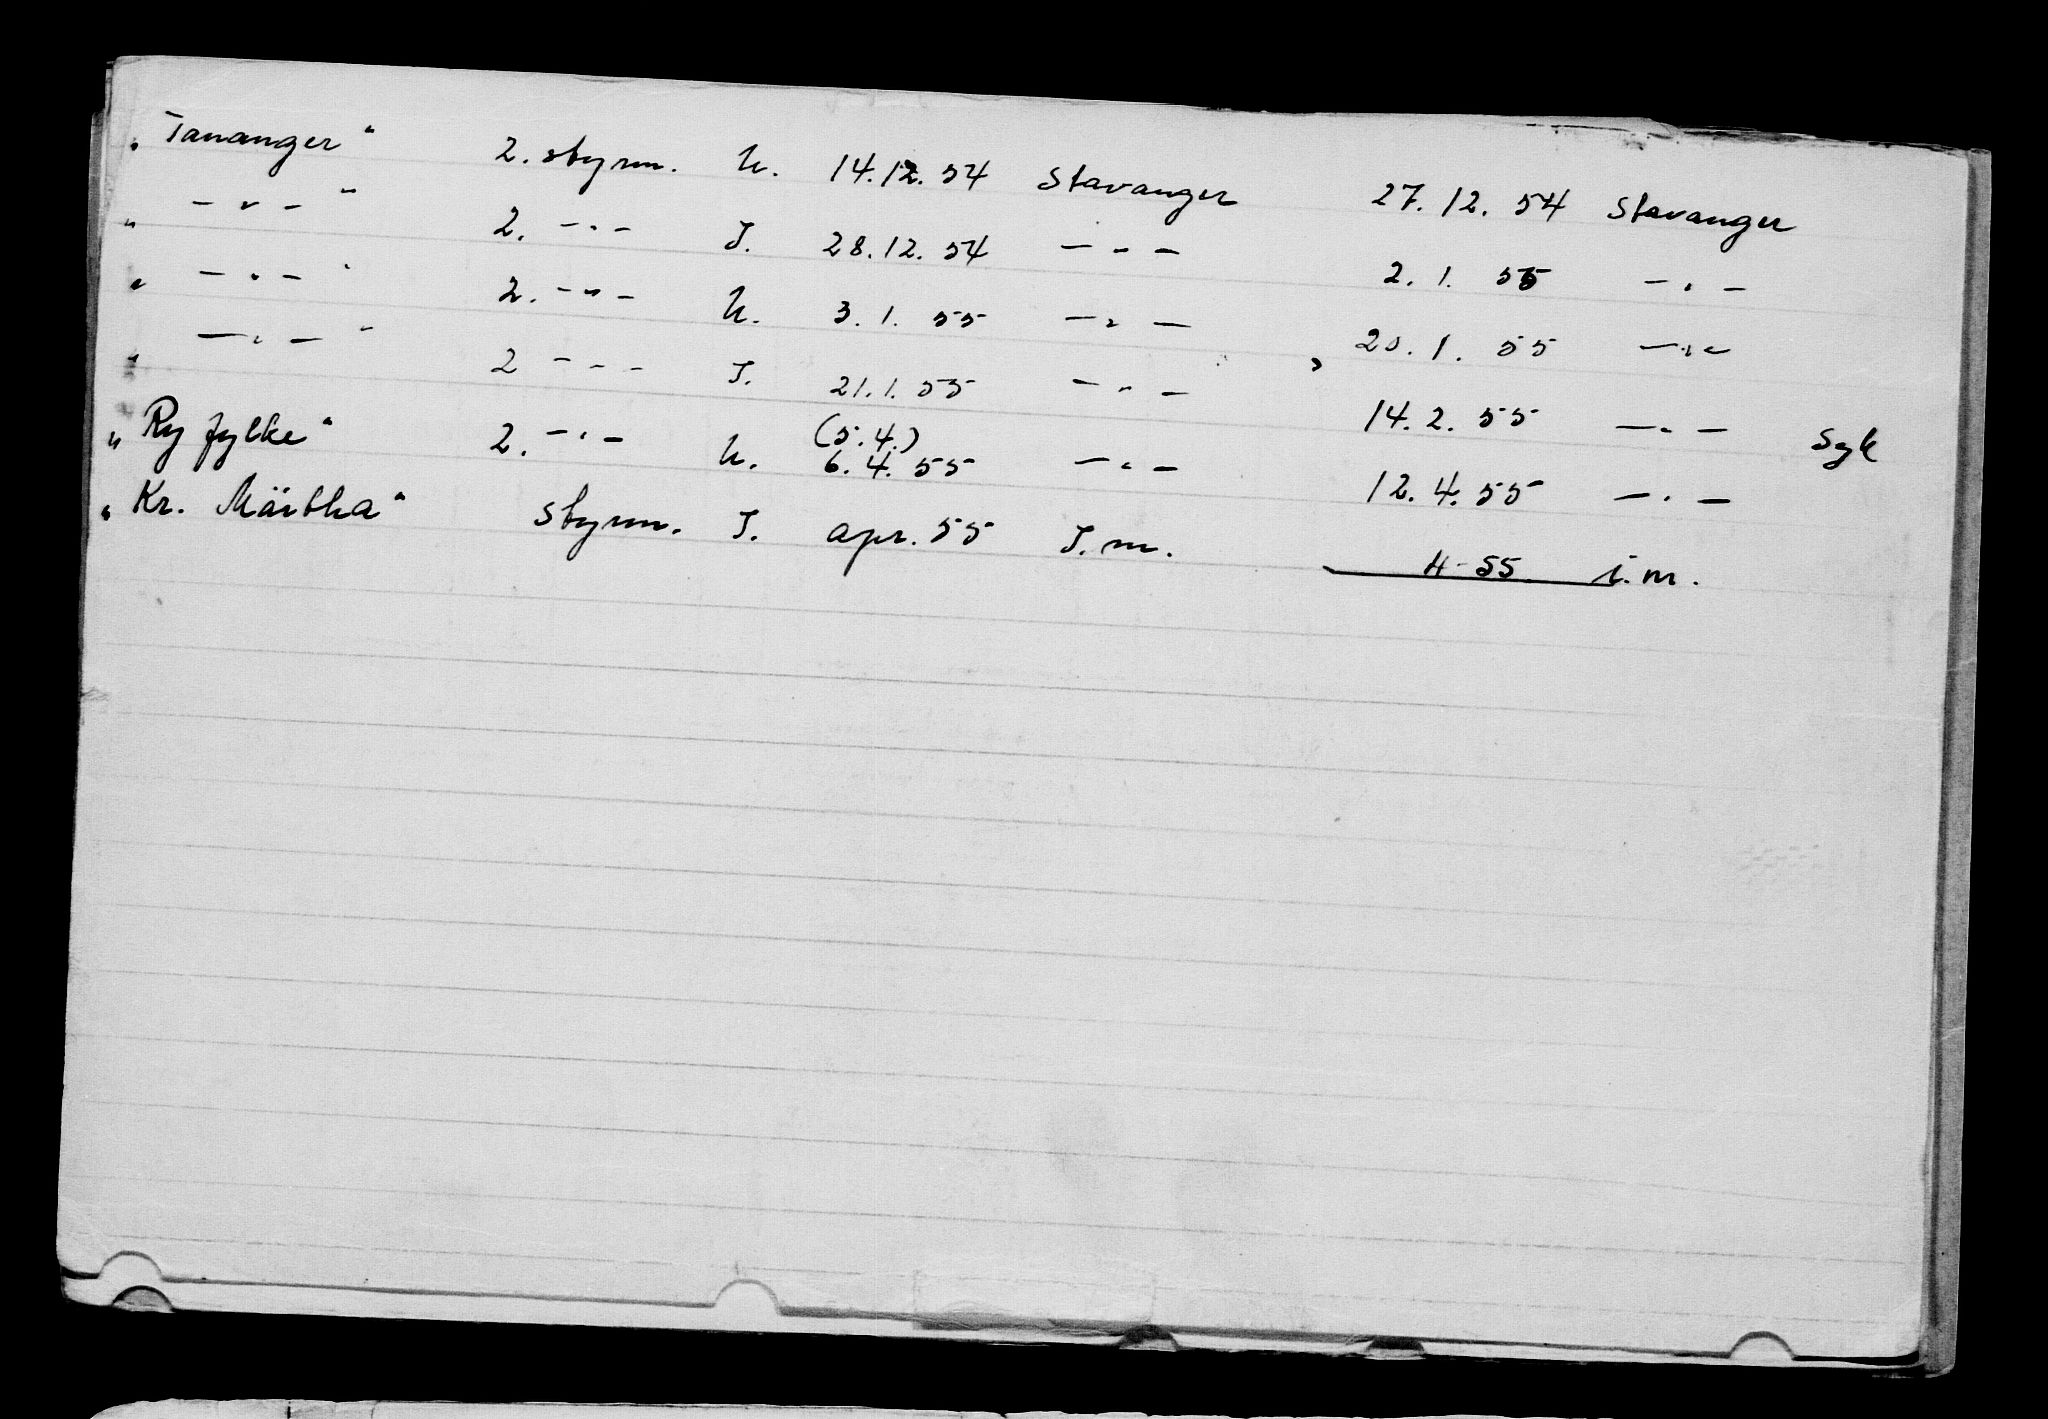 „Tananger“ 2. styrm. U. 14.12.54 Stavanger 27.12.54 Stavanger
„ — " — “ 2. — " — I. 28.12.54 — " — 2.1.55 — " —
„ — " — “ 2. — " — U. 3.1.55 — " — 20.1.55 — " —
„ — " — “ 2 — " — I. 21.1.55 — " — 14.2.55 — " — Syk
„Ryfylke“ 2. — " — U. (5.4.) 6.4.55 — " — 12.4.55 — " —
„Kr. Märtha“ styrm. I. apr. 55 I.m. 4-55 i.m.